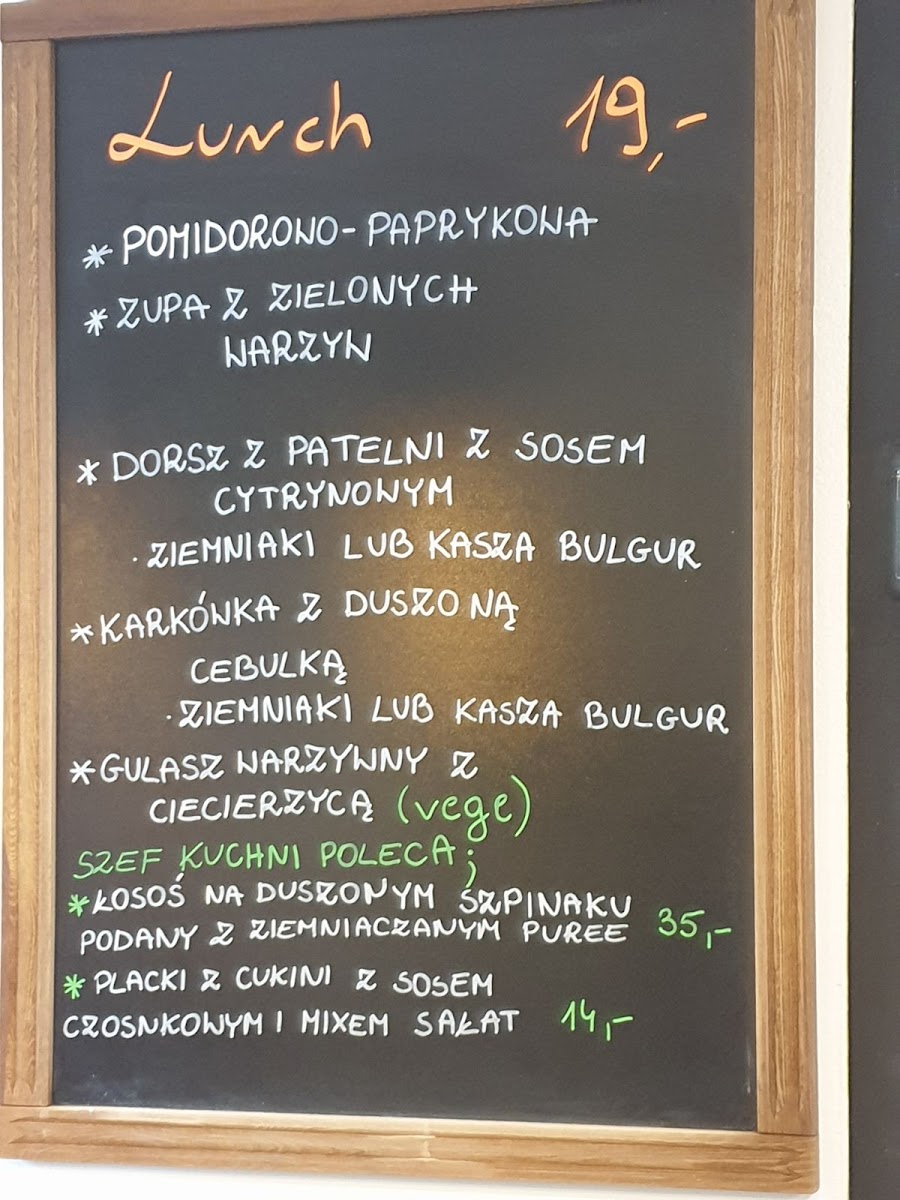 Lunch 19,-
* POMIDOROWO-PAPRYKOWA
* ZUPA Z ZIELONYCH
WARZYW
* DORSZ Z PATELNI Z SOSEM
CYTRYNOWYM
· ZIEMNIAKI LUB KASZA BULGUR
* KARKÓWKA Z DUSZONĄ
CEBULKĄ
· ZIEMNIAKI LUB KASZA BULGUR
* GULASZ WARZYWNY Z
CIECIERZYCĄ (vege)
SZEF KUCHNI POLECA;
* ŁOSOŚ NA DUSZONYM SZPINAKU
PODANY Z ZIEMNIACZANYM PUREE 35,-
* PLACKI Z CUKINI Z SOSEM
CZOSNKOWYM I MIXEM SAŁAT 14,-